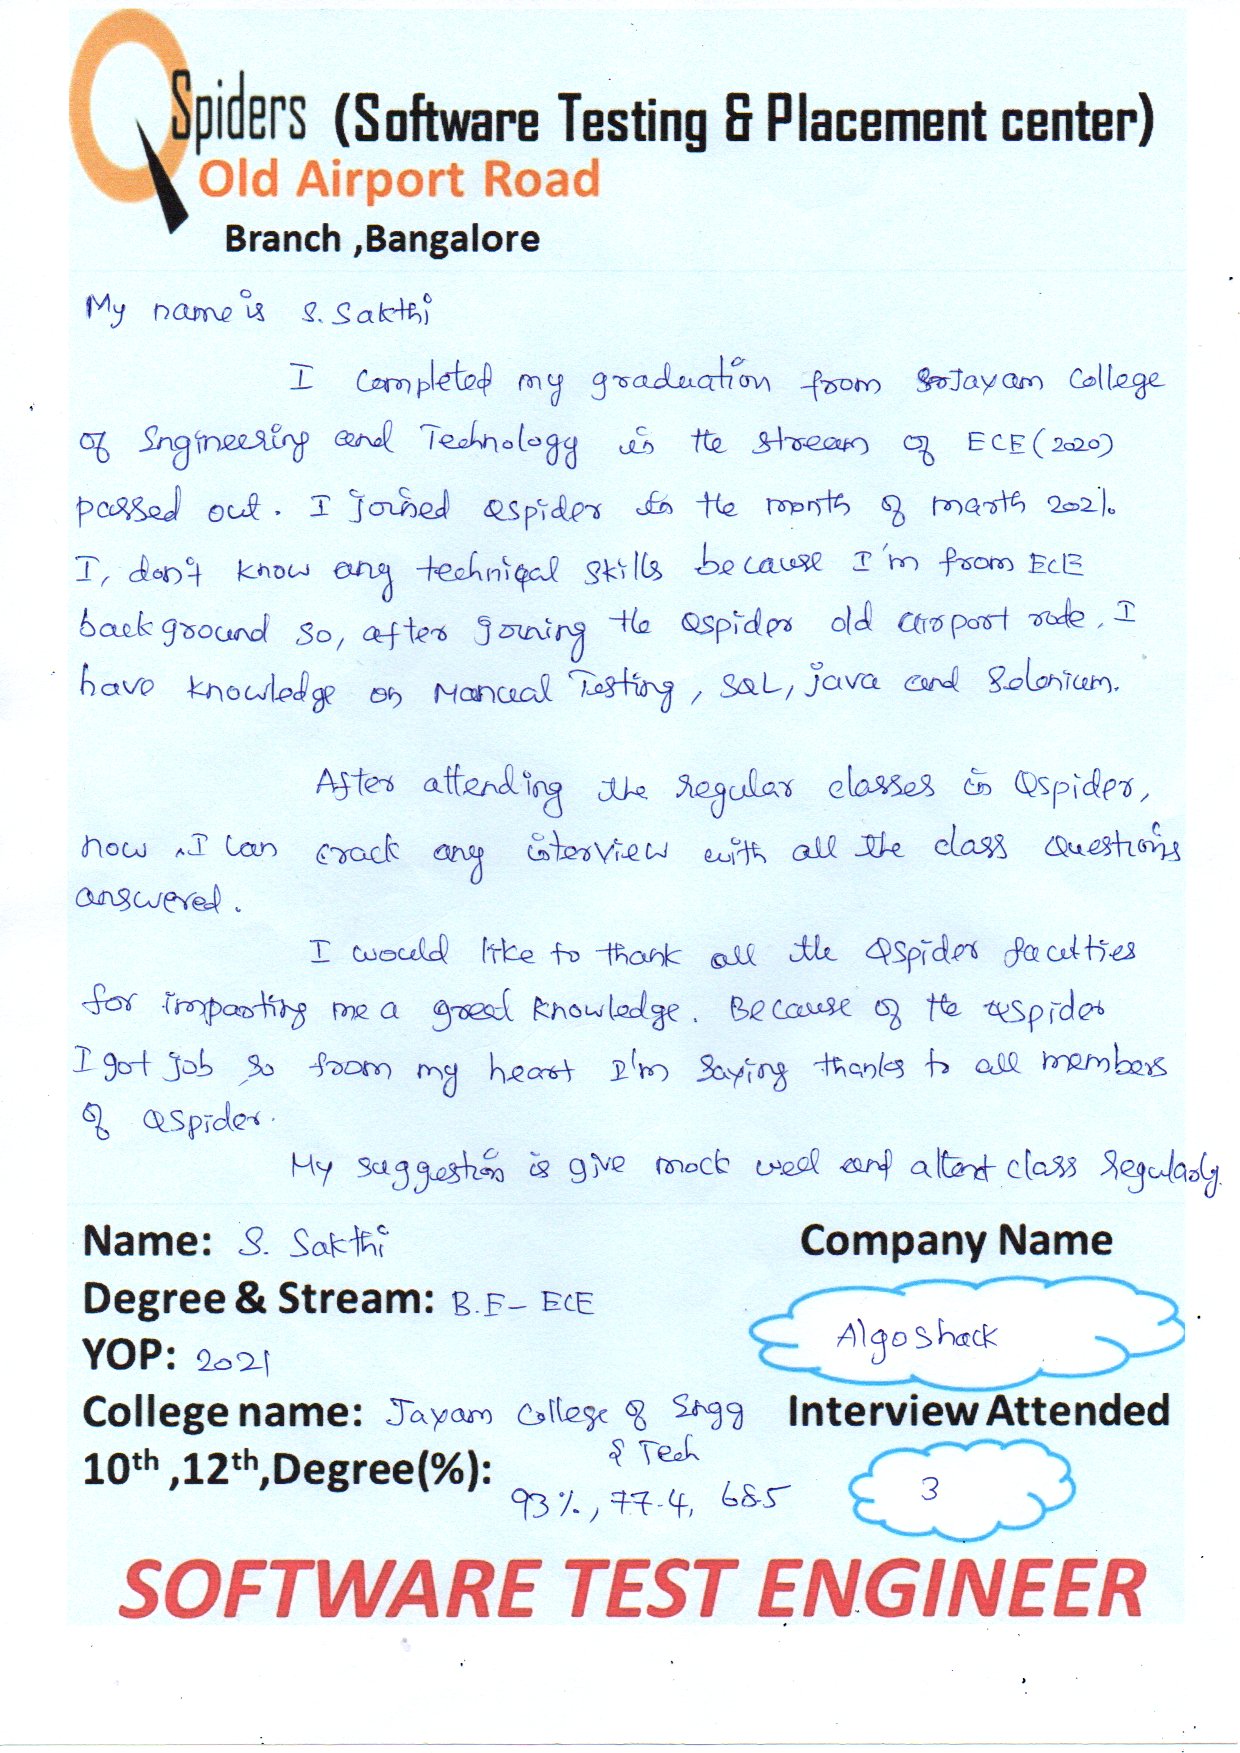 QSpiders (Software Testing & Placement center)
Old Airport Road
Branch ,Bangalore
My name is S. Sakthi
I completed my graduation from Jayam College
of Engineering and Technology in the stream of ECE (2020)
passed out. I joined Qspider in the month of marth 2021.
I, don't know any techniqal skills because I'm from ECE
background so, after joining the Qspider old airport rode, I
have knowledge on Manual Testing, SQL, java and Selenium.
After attending the regular classes in Qspider,
now I can crack any interview with all the class Questions
answered.
I would like to thank all the Qspider faculties
for imparting me a great knowledge. Because of the Qspider
I got job so from my heart I'm saying thanks to all members
of Qspider.
My suggestion is give mock well and attend class regularly.
Name: S. Sakthi
Company Name
Degree & Stream: B.E - ECE
Algoshack
YOP: 2021
College name: Jayam College of Engg
& Tech
Interview Attended
10th ,12th,Degree(%):
93%, 77.4, 68.5
3
SOFTWARE TEST ENGINEER